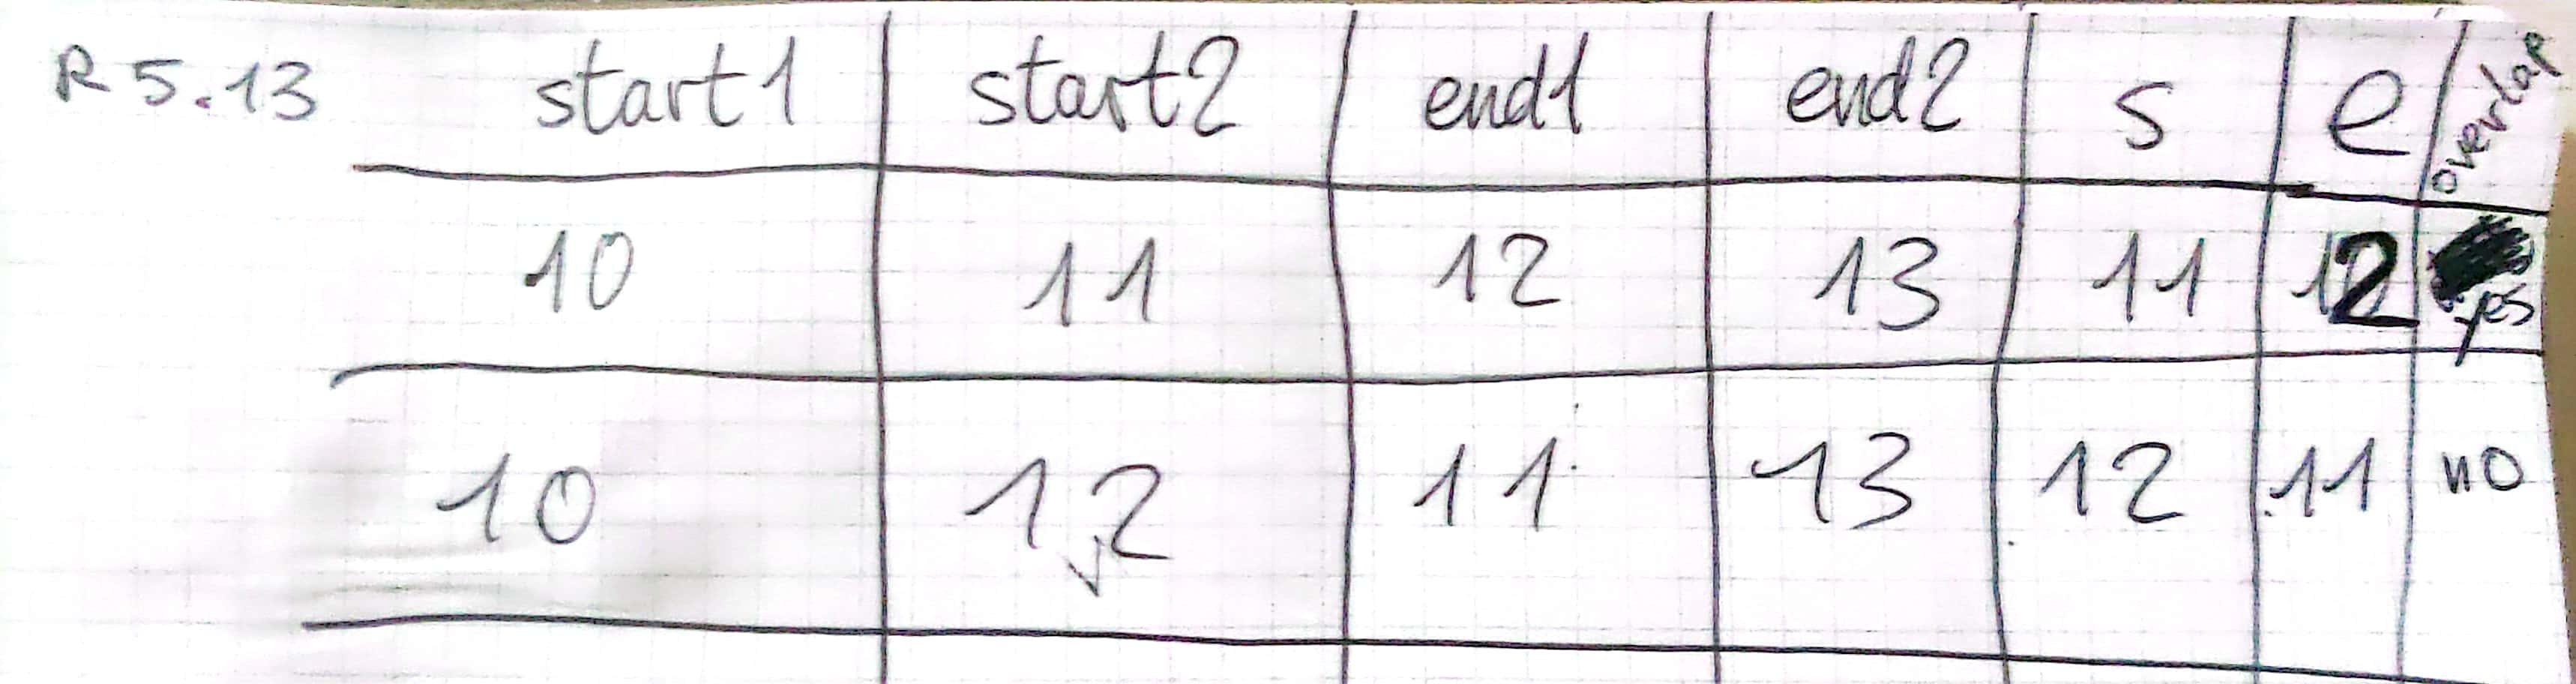 R 5.13 start1 start2 end1 end2 s e overlap
10 11 12 13 11 12 yes
10 12 11 13 12 11 no